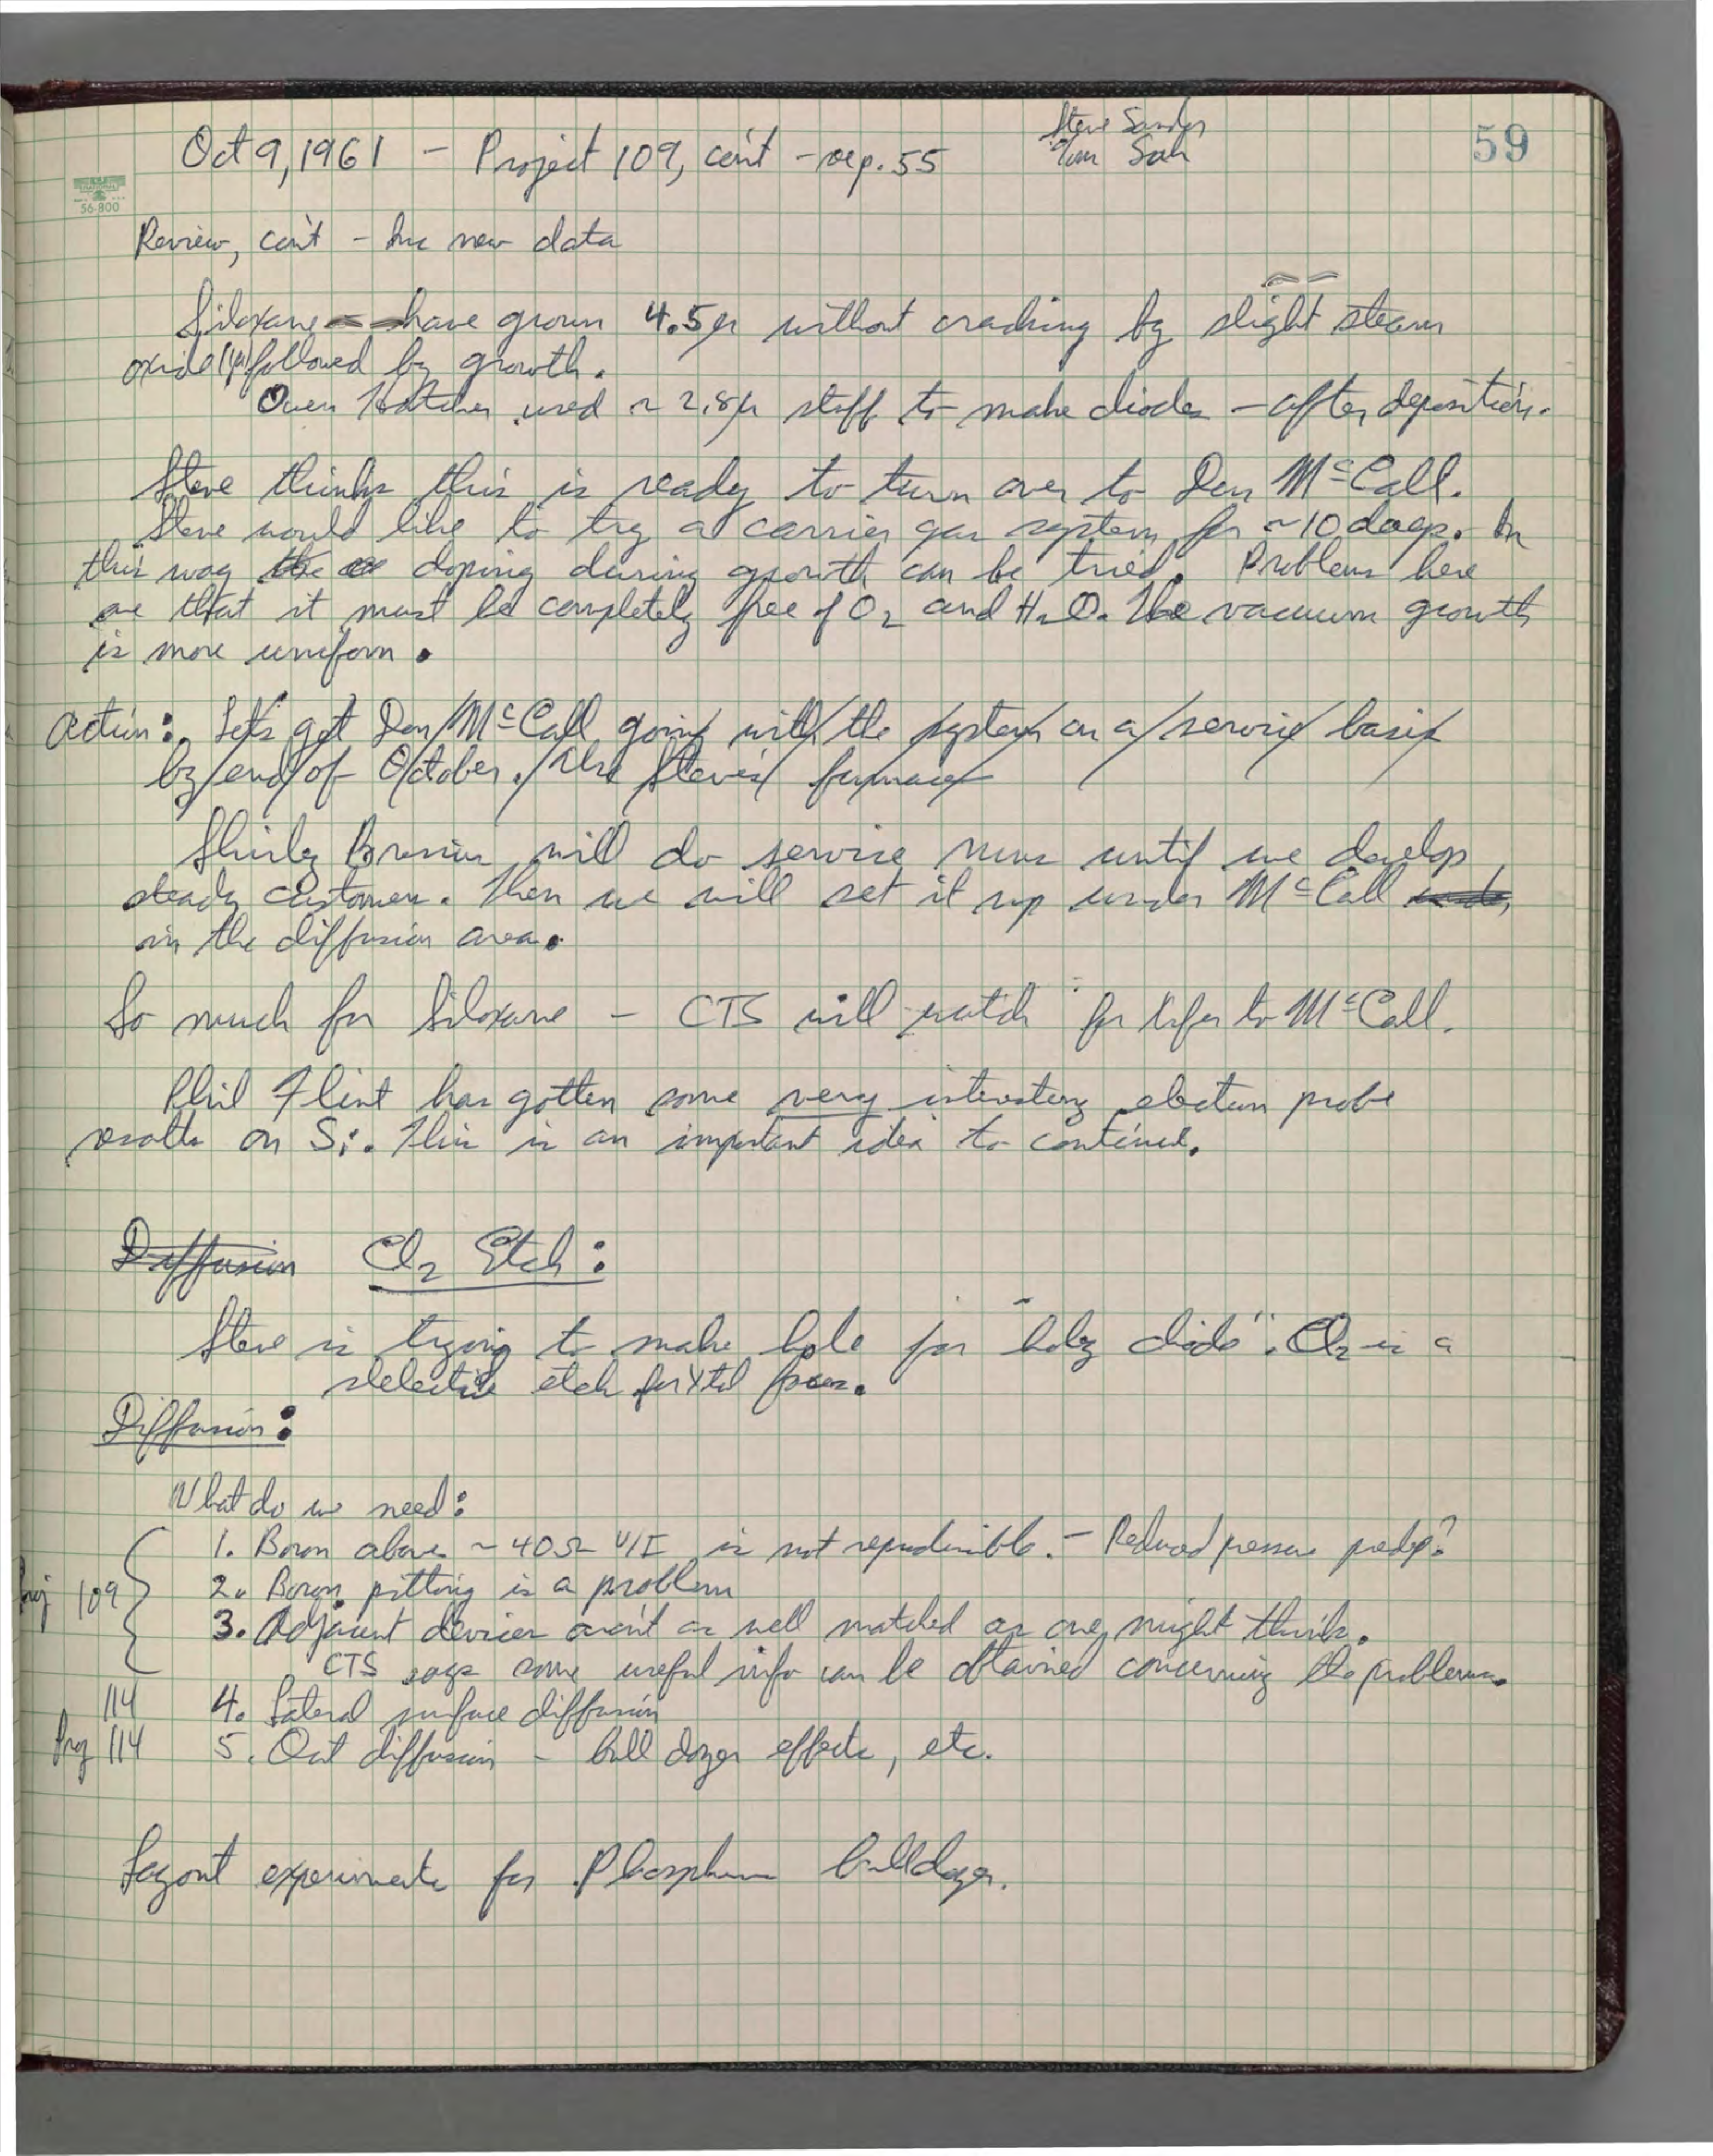 Oct 9, 1961 – Project 109, con't – see p. 55
Steve Sander
Tom Sah
59
NATIONAL
56-800
Review, con't – Inc new data
Siloxane – have grown 4.5μ without cracking by slight steam
oxide (1μ) followed by growth.
Owen Hatcher used ~ 2.8μ stuff to make diodes – after deposition.
Steve thinks this is ready to turn over to Don McCall.
Steve would like to try a carrier gas system for ~10 days. In
this way the doping during growth can be tried. Problems here
are that it must be completely free of O2 and H2O. The vacuum growth
is more uniform.
Action: Let's get Don McCall going with the system on a service basis
by end of October. Use Steve's furnace
Shirley will do service runs until we develop
steady customers. Then we will set it up under McCall under
in the diffusion area.
So much for Siloxane – CTS will watch for Xfer to McCall.
Phil Flint has gotten some very interesting electron probe
results on Si. This is an important idea to continue.
Diffusion Cl2 Etch:
Steve is trying to make hole for "holy diode". Cl2 is a
selective etch for Xtal faces.
Diffusion:
What do we need:
1. Boron above ~ 40Ω V/I is not reproducible. – Reduced pressure predep?
Proj 109
2. Boron pitting is a problem
3. Adjacent devices aren't as well matched as one might think.
CTS says some useful info can be obtained concerning the problems.
114 4. Lateral surface diffusion
Proj 114 5. Out diffusion – bull dozer effects, etc.
Layout experiments for Phosphorus bulldozer.